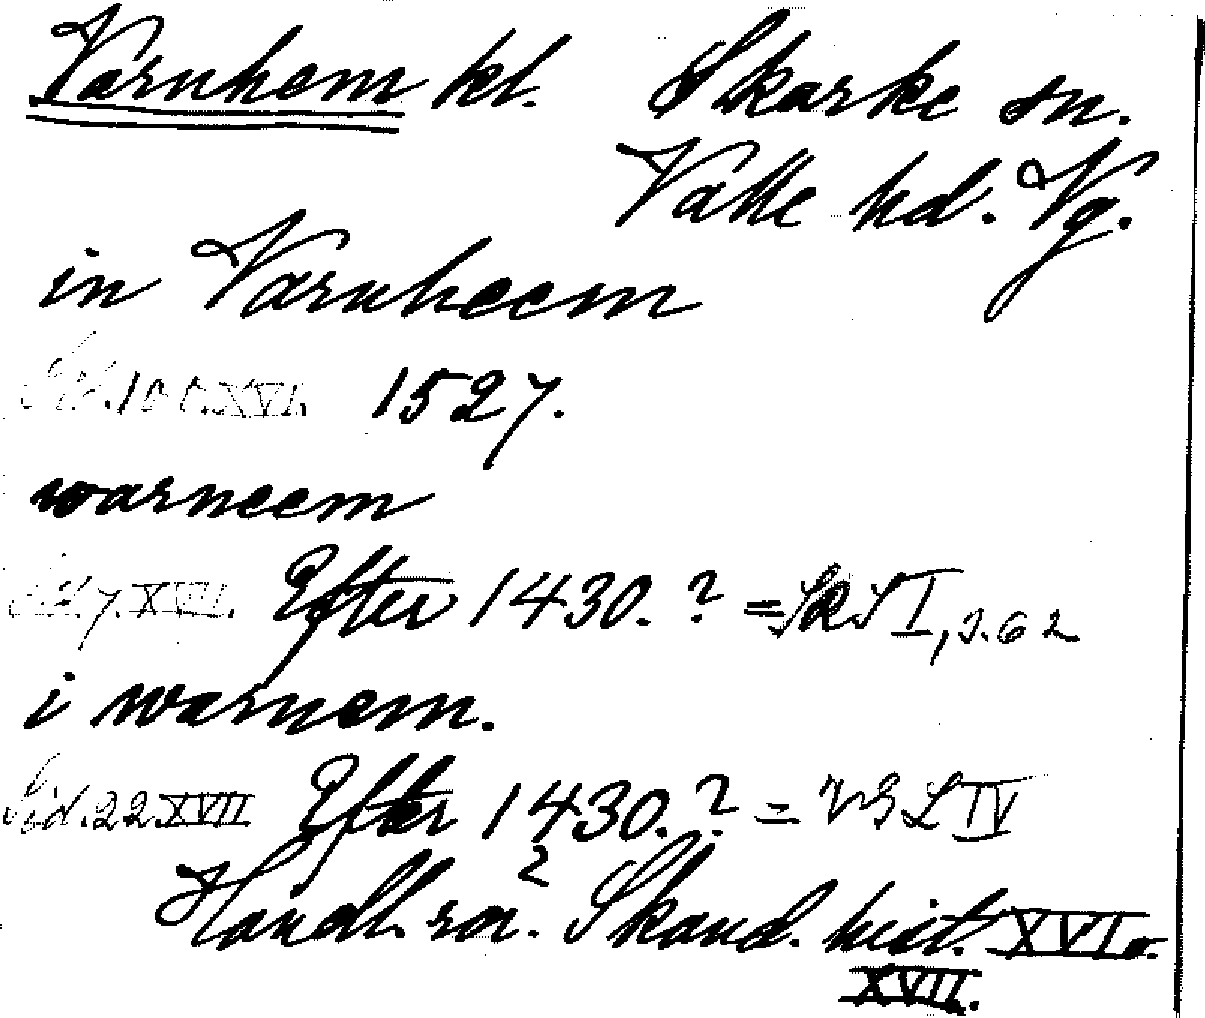 Varnhem kl. Skarke sn.
Valle hd. Vg.
in Varnheem
Sid. 100. XVI. 1527.
warneem
Sid. 7. XVII. Efter 1430.? = SkS I, s. 62
i warnem.
Sid. 22 XVII Efter 1430.? = VGL IV
2
Handl. rör. Skand. hist. XVI o.
XVII.